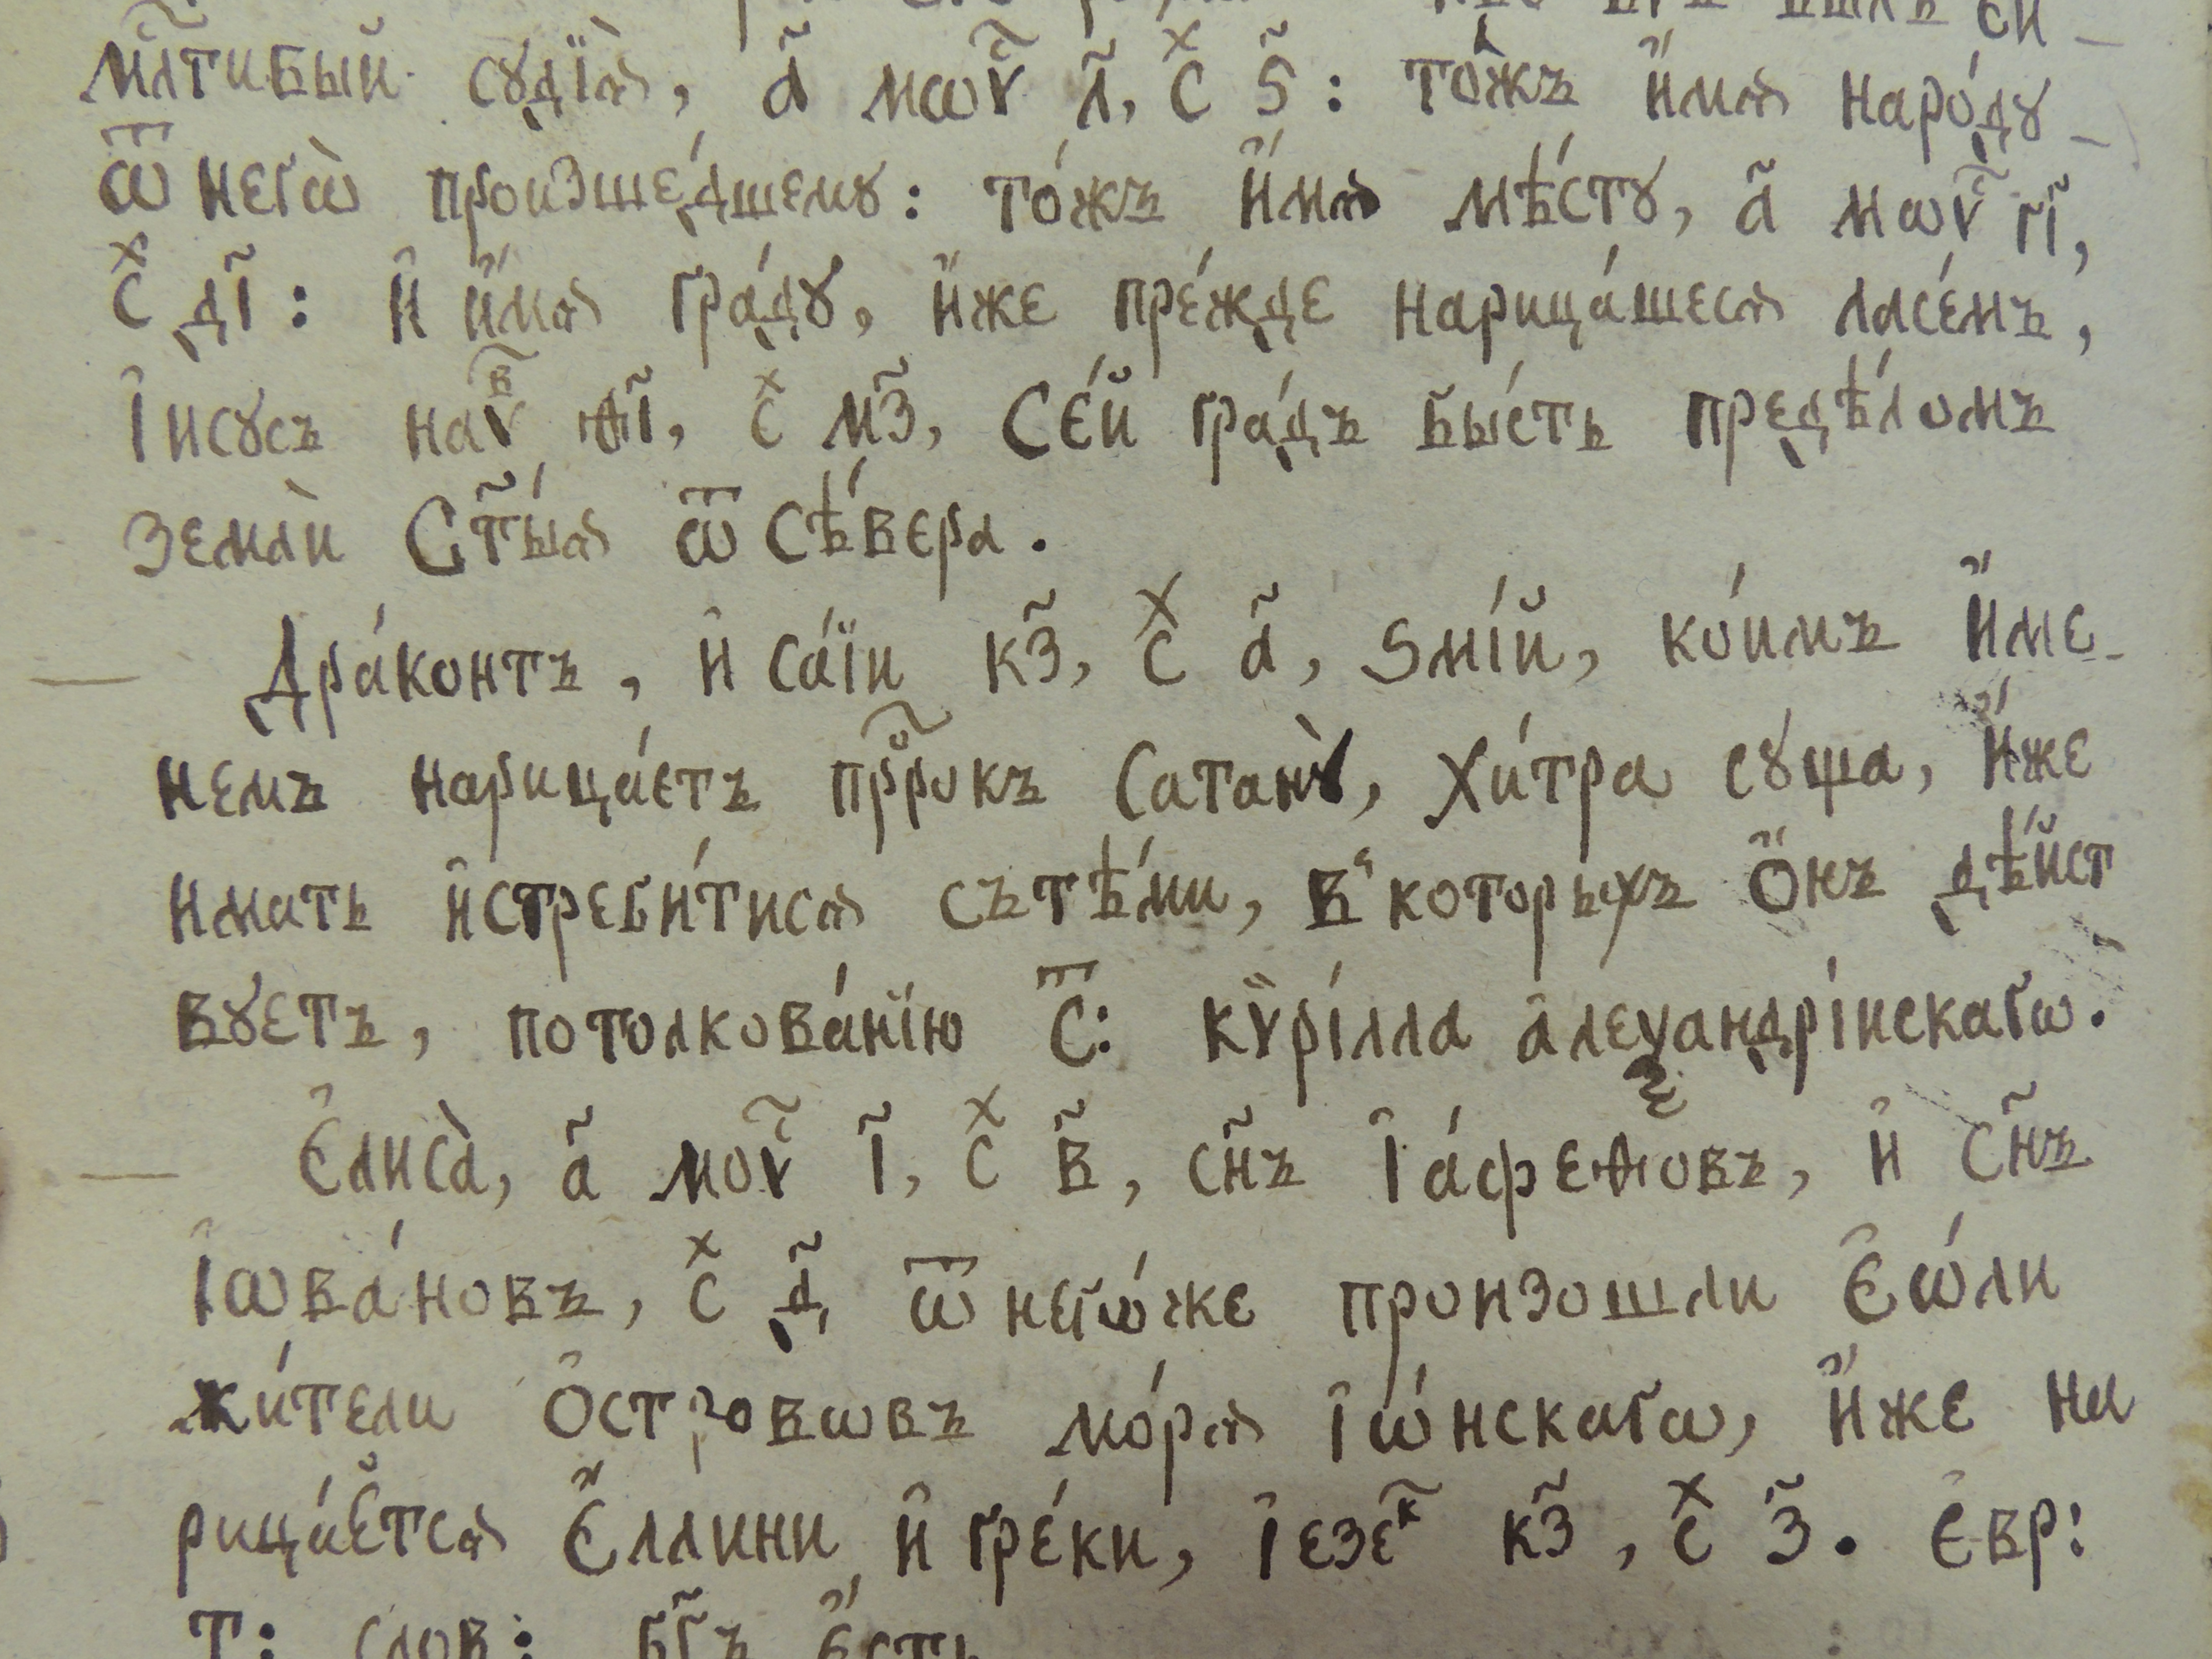 мл҃тивый судїѧ̀, а҃ мѡѵ҃с л҃, с̾х ѕ҃: то́жъ и҆́мѧ наро́ду
ѿ негѡ̀ произше́дшему: то́жъ и҆́мѧ мѣ́сту, а҃ мѡѵ҃с гі҃,
с̾х ді҃: и҆ и҆́мѧ гра́ду, и҆́же пре́жде нарица́шесѧ ласе́мъ,
І҆исусъ наѵ҃в ѳ҃і, с̾х мз҃, Се́й гра́дъ бы́сть предѣ́ломъ
землѝ Ст҃ы́ѧ ѿ сѣ́вера.
Дра́контъ, и҆са́їи кз҃, с̾х а҃, ѕмі́й, ко́имъ и҆́ме_
немъ нарица́етъ прⷪ҇рокъ Сатанꙋ̀, хи́тра суща, и҆́же
имать и҆стреби́тисѧ сътѣ́ми, в̾ которыхъ ѻ҆́нъ дѣ́йст
вуетъ, потолкова́нїю С҃т: кѷрі́лла а҆леѯандрі́искагѡ.
Є҆лиса̀, а҃ моѵ҃с і҃, с̾х в҃, сн҃ъ І҆а́феѳовъ, и҆ сн҃ъ
І҆ѡва́новъ, с̾х д҃, ѿ негѡ́же произошли Є҆ѡ́ли
жи́тели ѻ҆стровѡвъ мо́рѧ І҆ѡ́нскагѡ, и҆́же на
рица́етсѧ Є҆́ллини и҆ гре́ки, І҆езе҃к кз҃, с̾х з҃. Є҆вр:
Т: слов: бг҃ъ є҆́сть